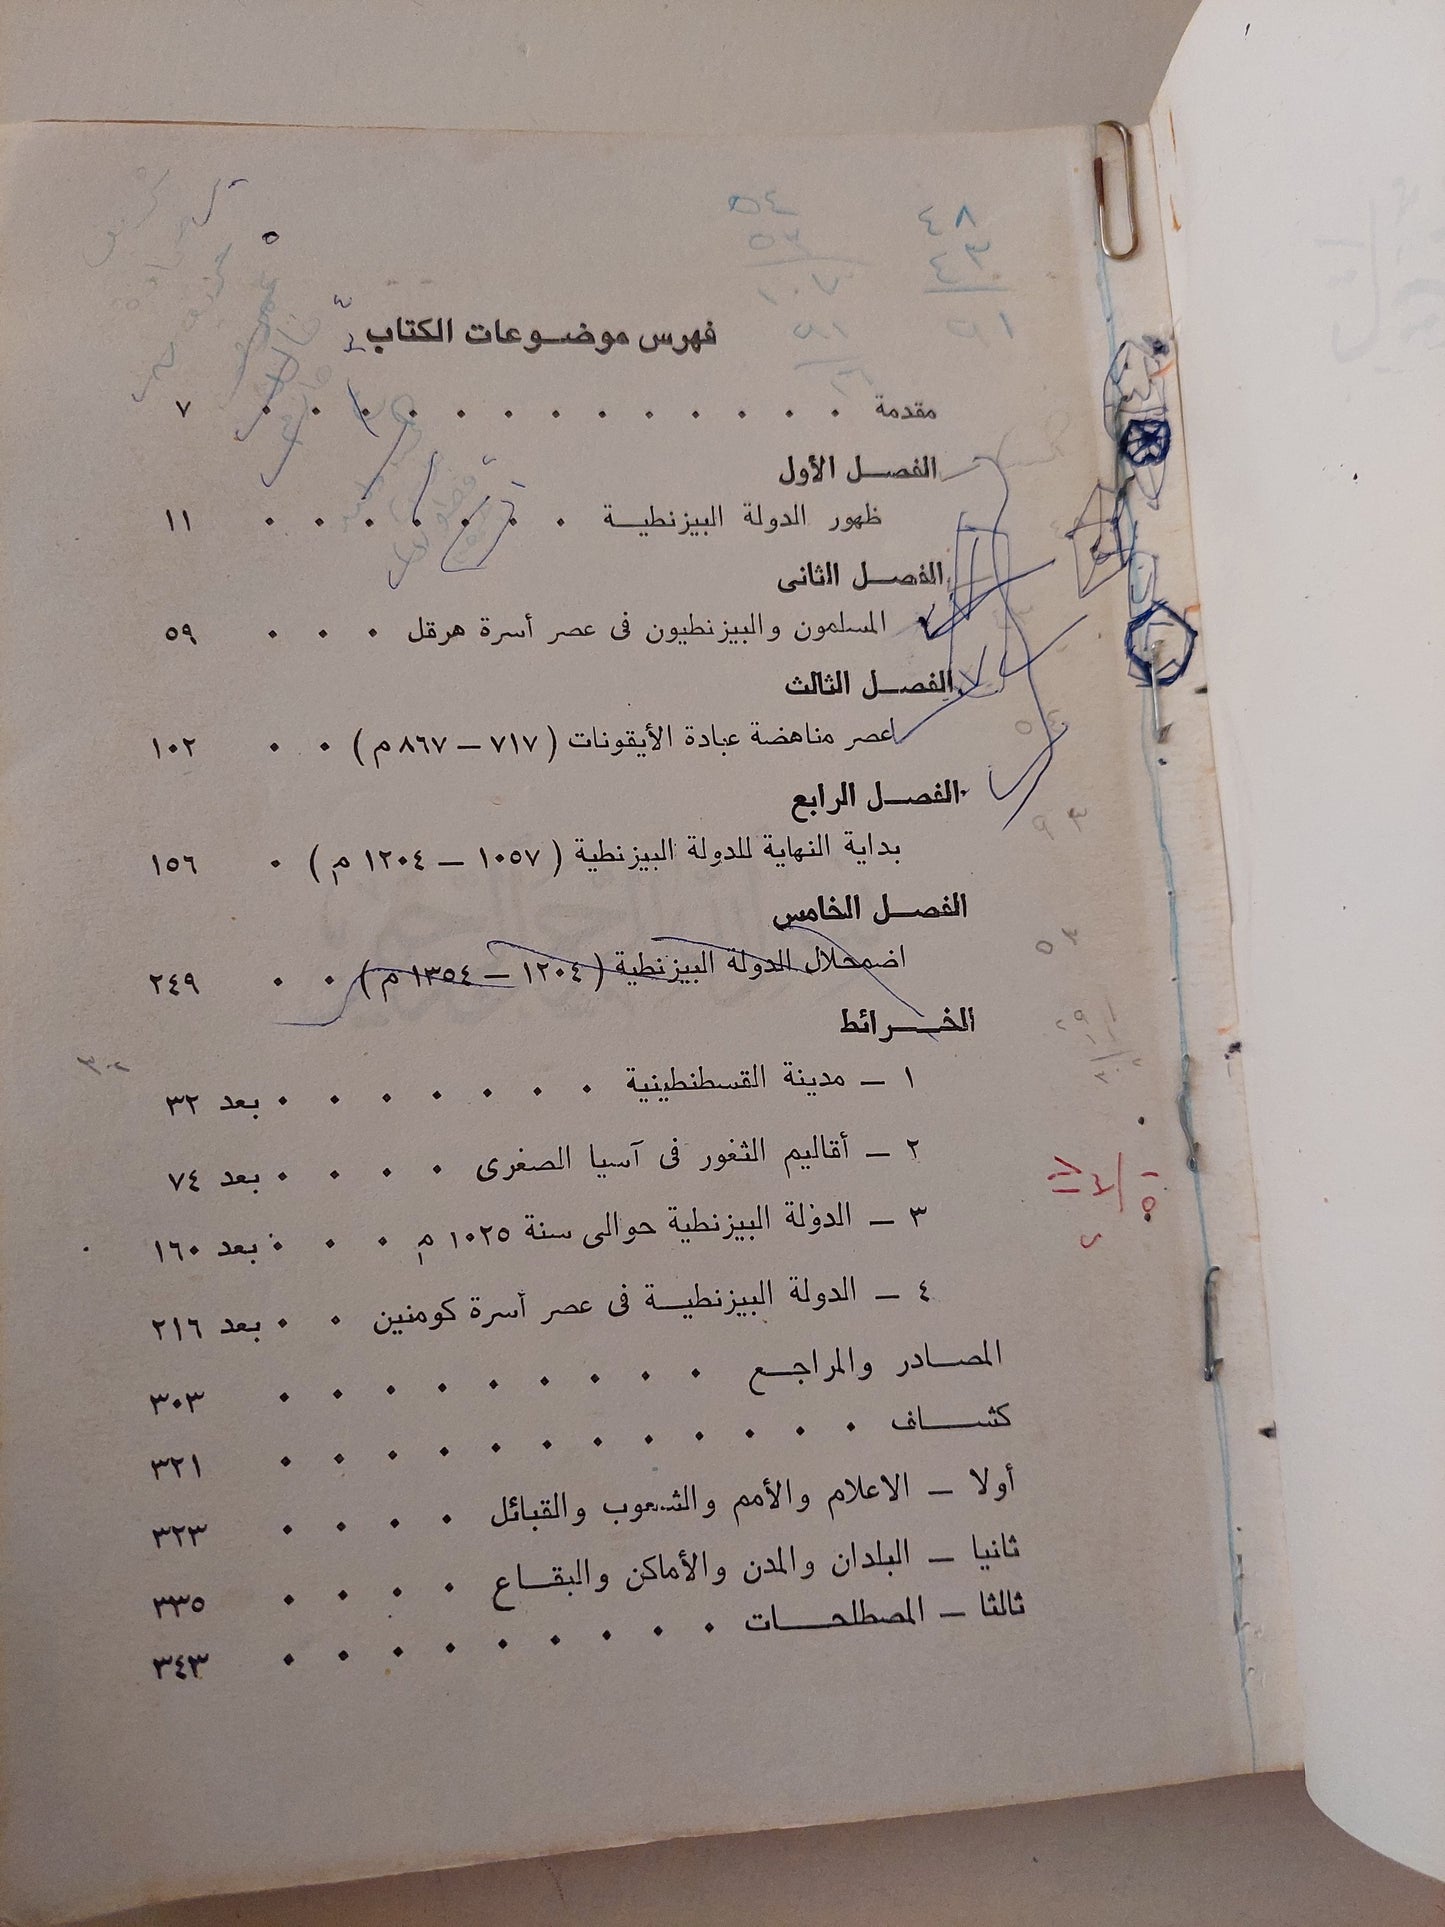 ٤٨
٤٣
٩١
٥٤
٥٣
١٠٧
فهرس موضوعات الكتاب
مقدمة . . . . . . . . . . . . . ٧
الفصل الأول
ظهور الدولة البيزنطية . . . . . . . ١١
الفصل الثانى
المسلمون والبيزنطيون فى عصر أسرة هرقل . . . ٥٩
الفصل الثالث
عصر مناهضة عبادة الأيقونات ( ٧١٧ – ٨٦٧ م ) . . ١٠٢
الفصل الرابع
بداية النهاية للدولة البيزنطية ( ١٠٥٧ – ١٢٠٤ م ) . ١٥٦
الفصل الخامس
اضمحلال الدولة البيزنطية ( ١٢٠٤ – ١٣٥٤ م ) . . ٢٤٩
الخرائط
١ – مدينة القسطنطينية . . . . . . . بعد ٣٢
٢ – أقاليم الثغور فى آسيا الصغرى . . . . بعد ٧٤
٣ – الدولة البيزنطية حوالى سنة ١٠٢٥ م . . . بعد ١٦٠
٤ – الدولة البيزنطية فى عصر أسرة كومنين . . بعد ٢١٦
المصادر والمراجع . . . . . . . . . ٣٠٣
كشاف . . . . . . . . . . . . ٣٢١
أولا – الاعلام والأمم والشعوب والقبائل . . . . ٣٢٣
ثانيا – البلدان والمدن والأماكن والبقاع . . . . ٣٣٥
ثالثا – المصطلحات . . . . . . . . . ٣٤٣